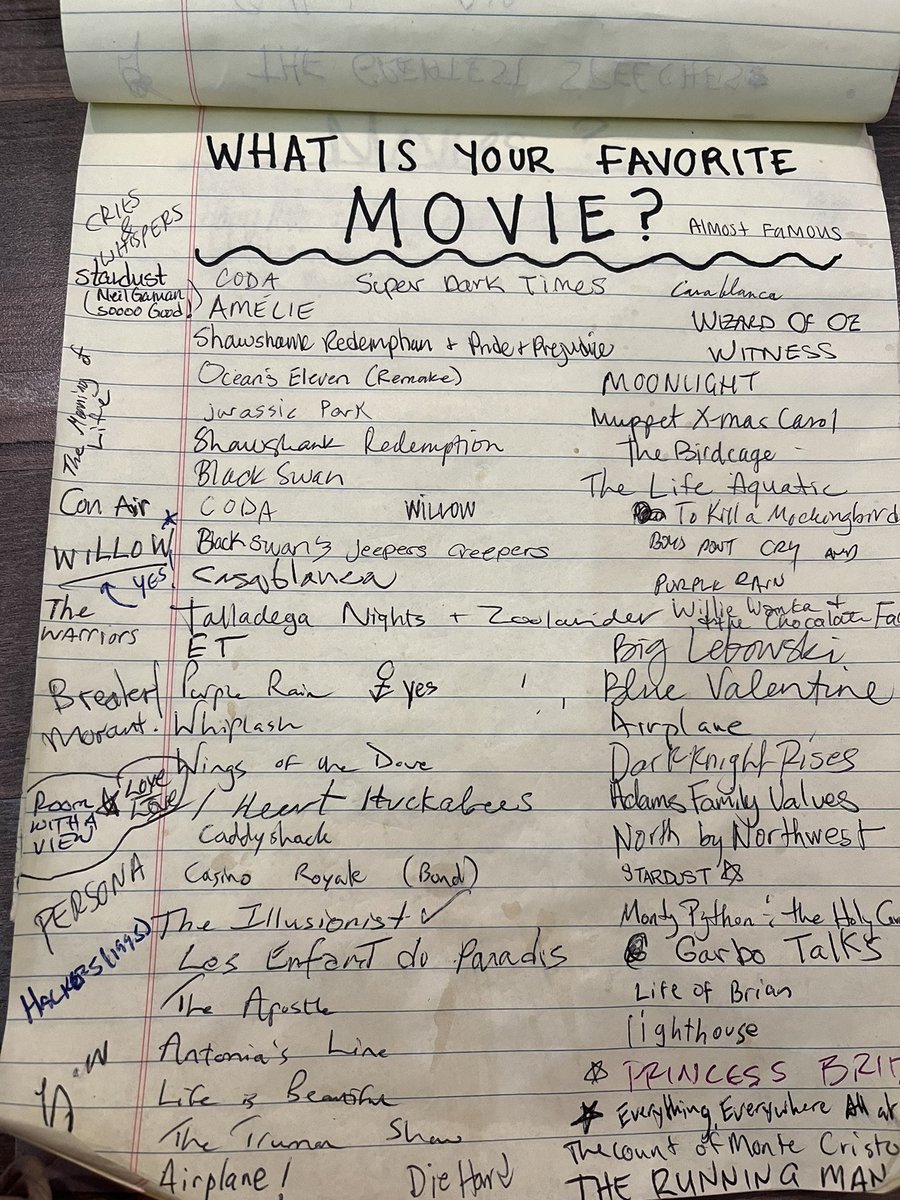 WHAT IS YOUR FAVORITE
MOVIE?
ALMOST FAMOUS
CRIES
&
WHISPERS
Stardust
(Neil Gaiman
soooo Good!)
The Meaning of
Life
Con Air
WILLOW
YES
The
WARRIORS
Breaker
Morant.
ROOM
WITH A
VIEW
LOVE
LOVE
PERSONA
HACKERS (1995)
CODA
Super Dark Times
AMÉLIE
Shawshank Redemption + Pride + Prejudice
Ocean's Eleven (Remake)
jurassic Park
Shawshank Redemption
Black Swan
CODA
WILLOW
Black Swan's jeepers creepers
Casablanca
Talladega Nights + Zoolander
ET
Purple Rain
yes
Whiplash
Wings of the Dove
I Heart Huckabees
Caddyshack
Casino Royale (Bond)
The Illusionist ✓
Los Enfant do Paradis
The Apostle
Antonia's Line
Life is Beautiful
The Truman Show
Airplane!
Die Hard
Casablanca
WIZARD OF OZ
WITNESS
MOONLIGHT
Muppet X-mas Carol
The Birdcage
The Life Aquatic
To Kill a Mockingbird
BOYS DON'T CRY AND
PURPLE RAIN
Willie Wonka +
the Chocolate Fac
Big Lebowski
Blue Valentine
Airplane
Dark Knight Rises
Adams Family Values
North by Northwest
STARDUST ☆
Monty Python : the Holy
Garbo Talks
Life of Brian
lighthouse
☆ PRINCESS BRI
★ Everything Everywhere All at
The Count of Monte Cristo
THE RUNNING MAN